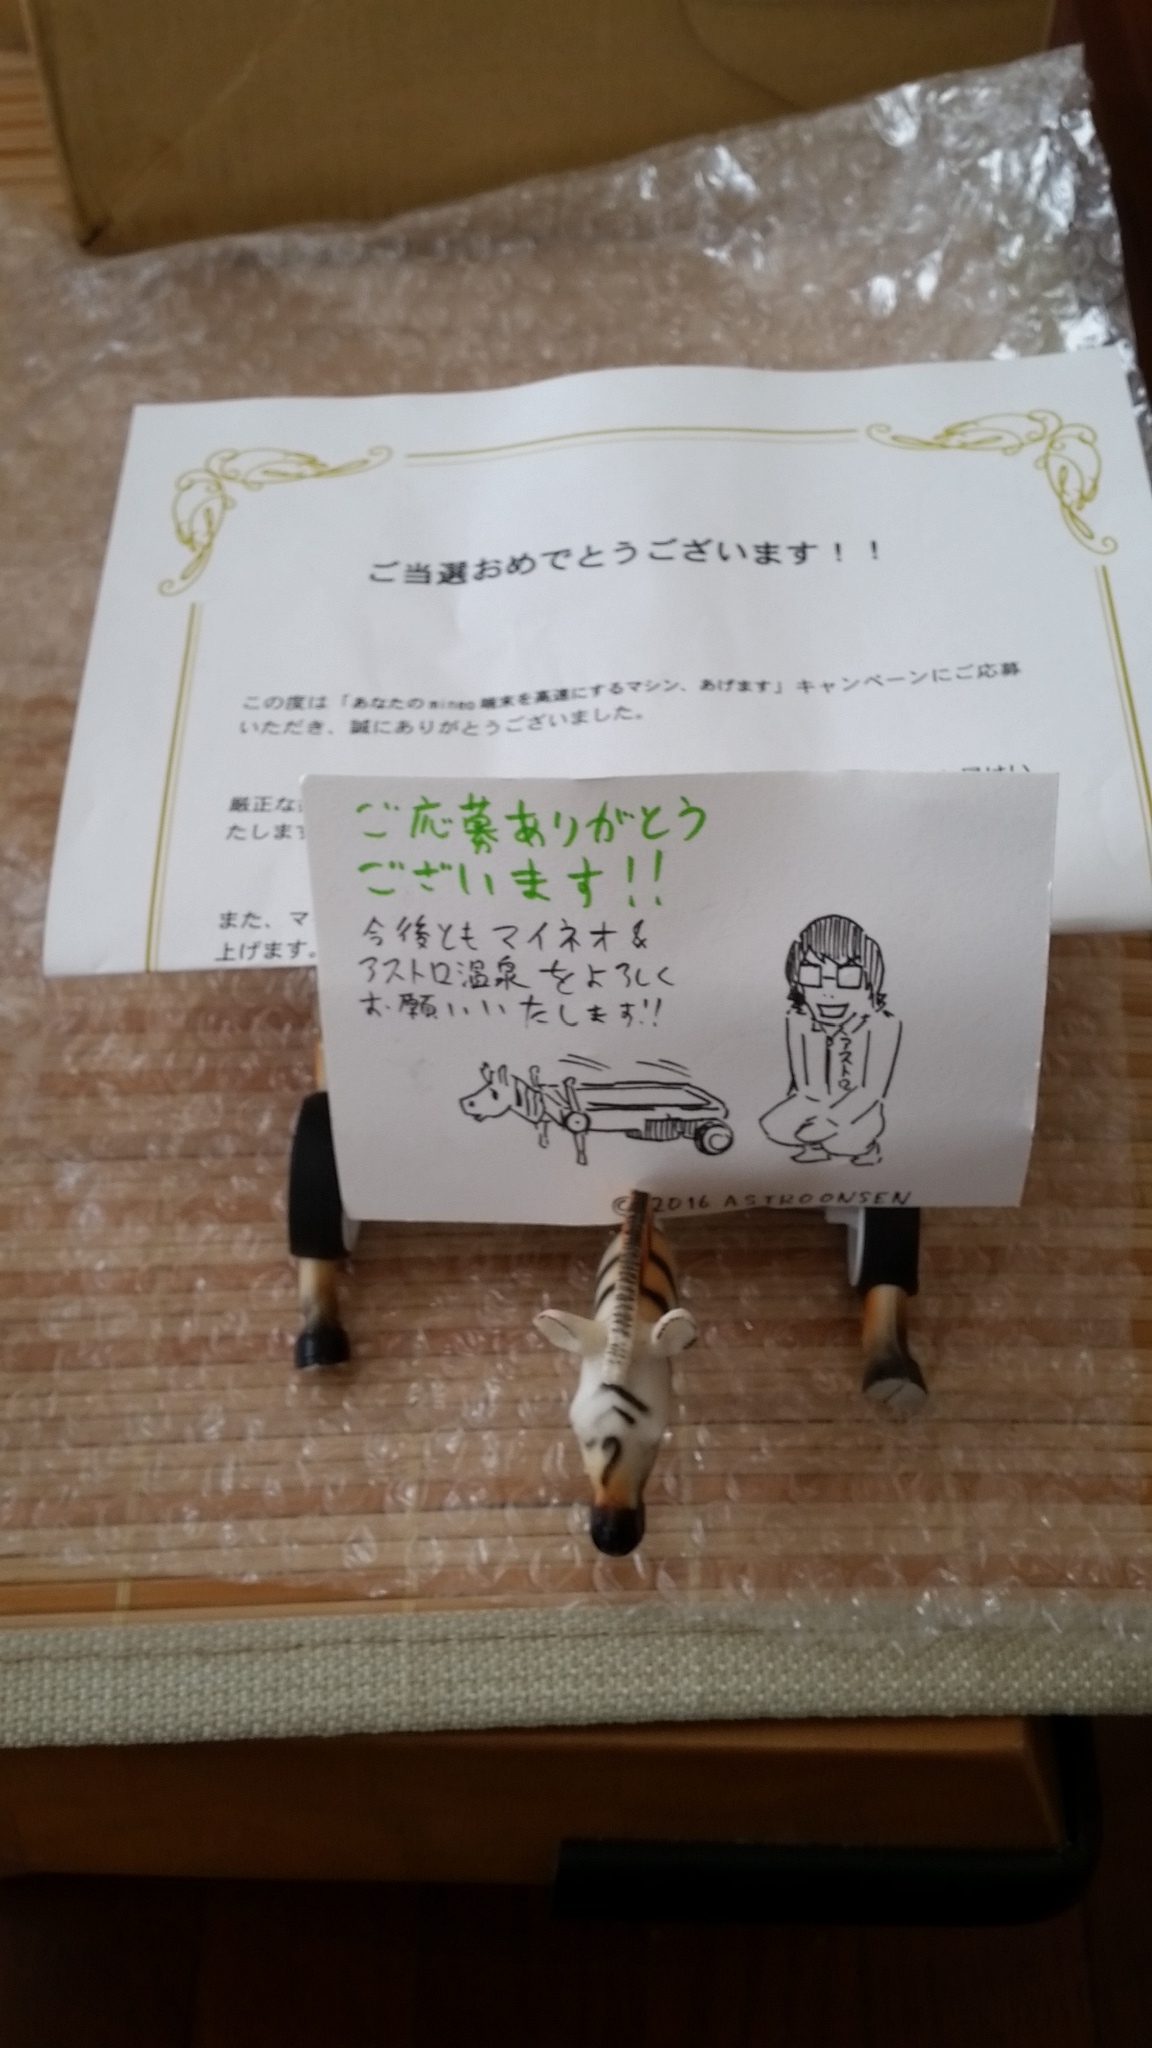 ご当選おめでとうございます！！
この度は「あなたのmineo端末を高速にするマシン、あげます」キャンペーンにご応募
いただき、誠にありがとうございました。
厳正な
たします
また、マ
上げます。
ご応募ありがとう
ございます!!
今後ともマイネオ&
アストロ温泉をよろしく
お願いいたします!!
アストロ
© 2016 ASTROONSEN